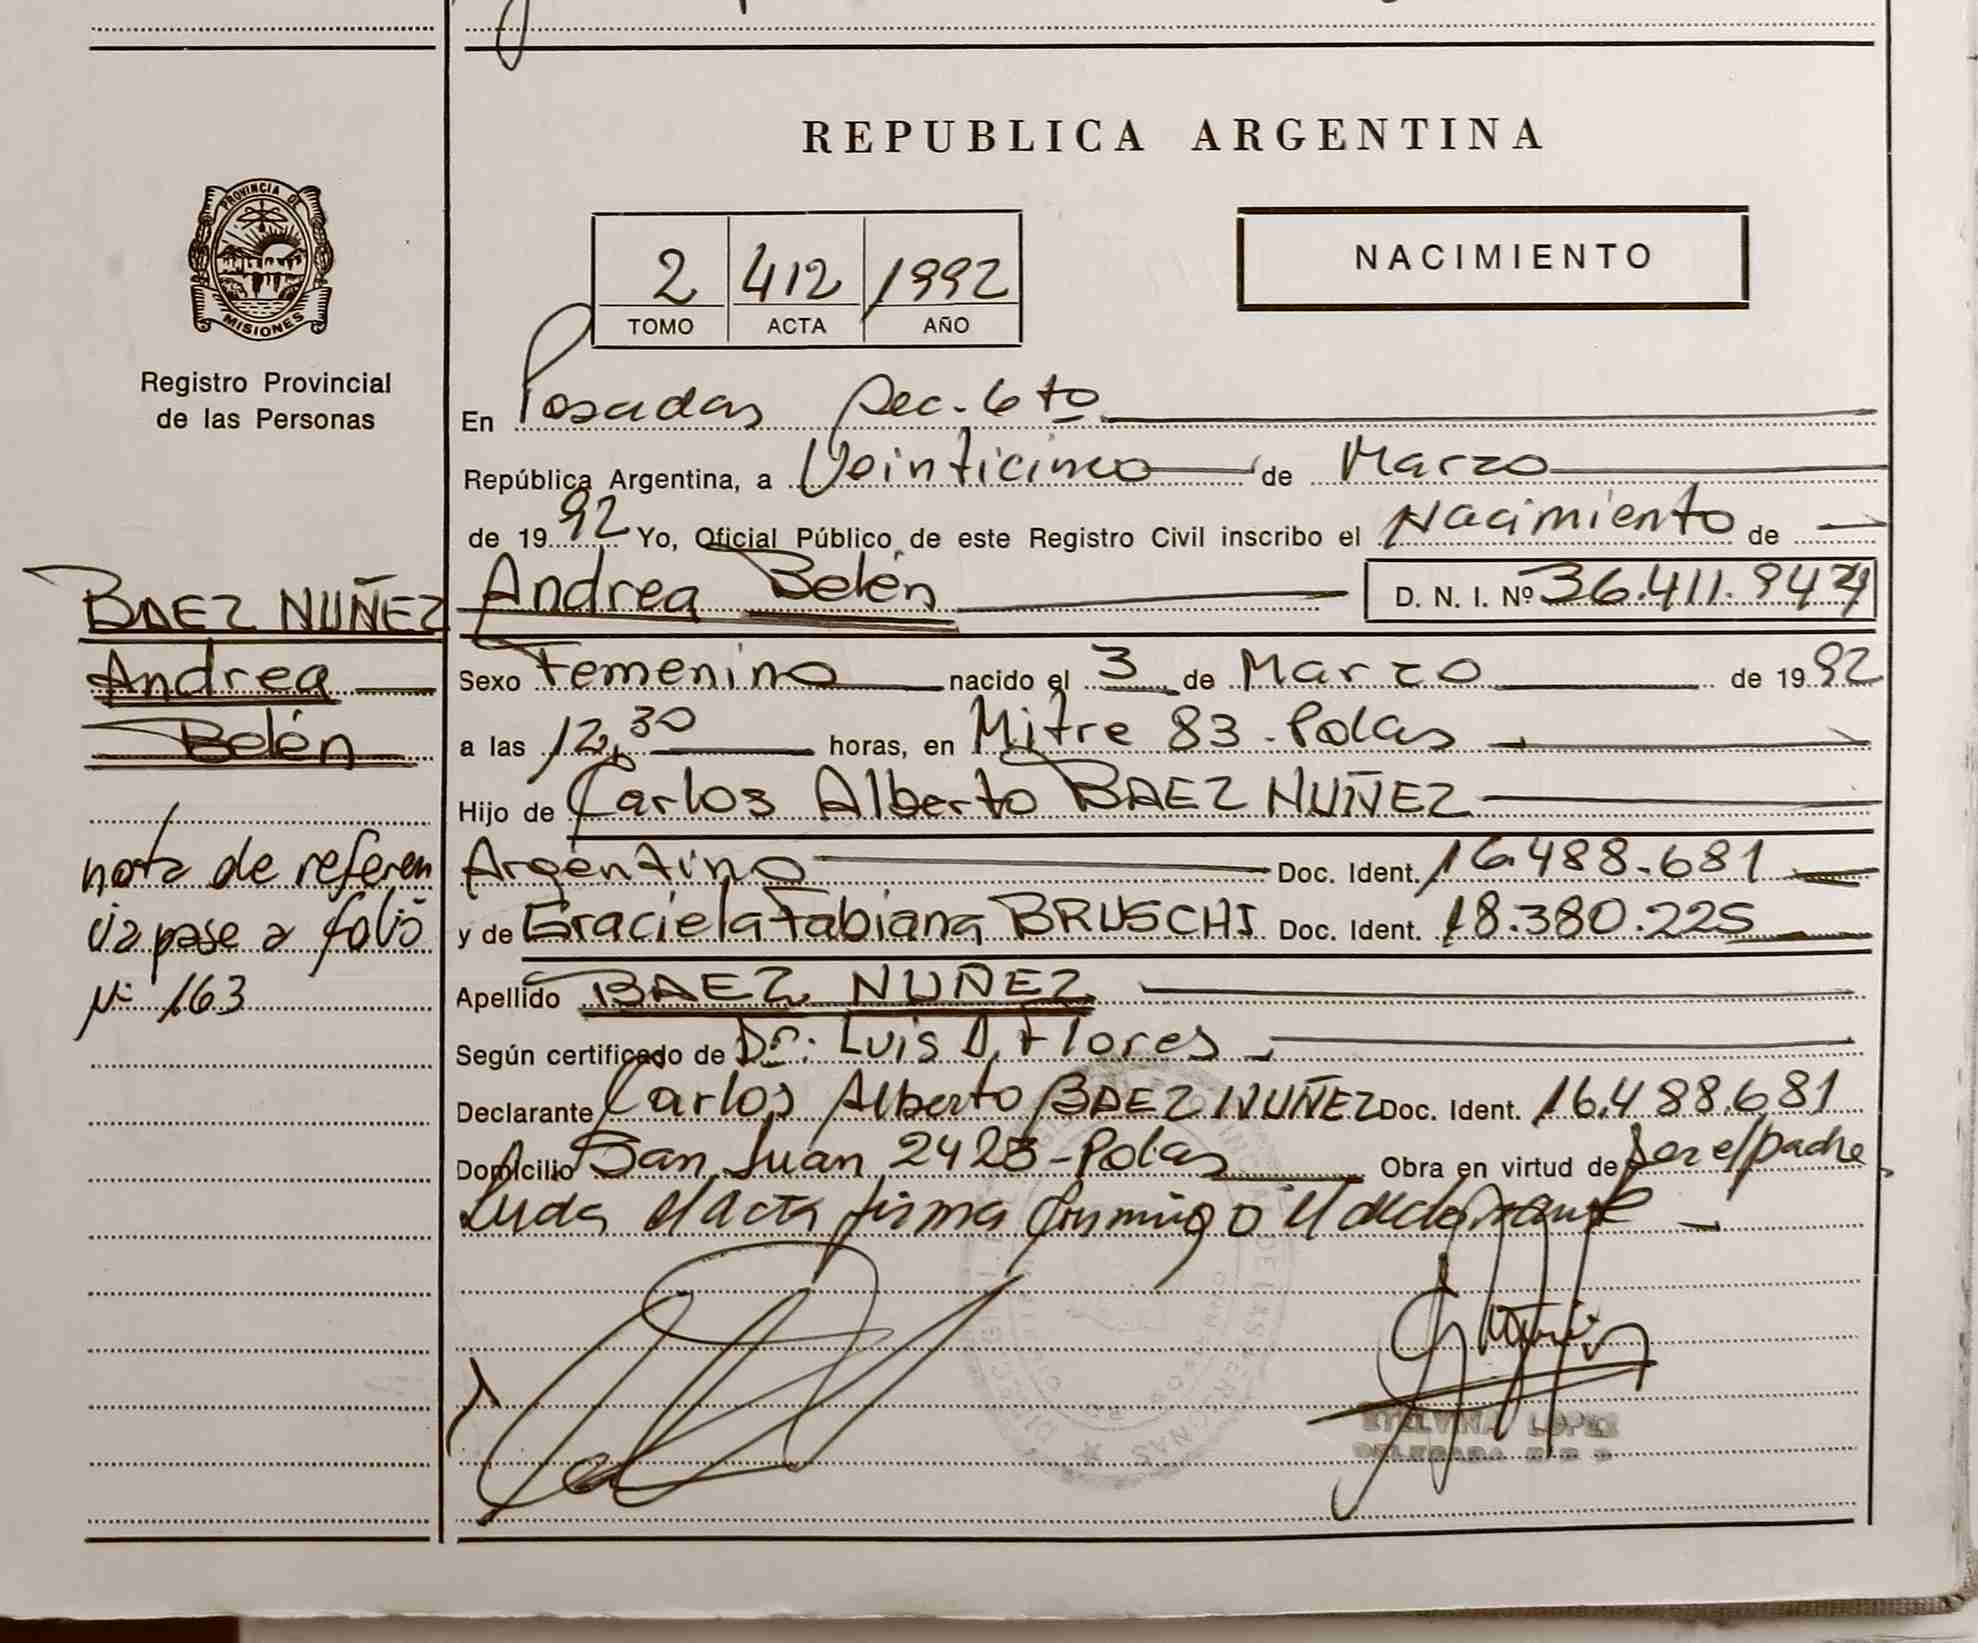 REPUBLICA ARGENTINA
PROVINCIA DE
MISIONES
Registro Provincial
de las Personas
NACIMIENTO
2 412 1992
TOMO ACTA AÑO
En Posadas Sec. 6to
República Argentina, a Veinticinco de Marzo
de 1992 Yo, Oficial Público de este Registro Civil inscribo el Nacimiento de
BAEZ NUÑEZ
Andrea
Belén
nota de referen
cia pase a folio
Nº 163
Andrea Belén D. N. I. Nº 36.411.947
Sexo Femenino nacido el 3 de Marzo de 1992
a las 12,30 horas, en Mitre 83 - Pdas
Hijo de Carlos Alberto BAEZ NUÑEZ
Argentino Doc. Ident. 16.488.681
y de Graciela Fabiana BRUSCHI Doc. Ident. 18.380.225
Apellido BAEZ NUÑEZ
Según certificado de Dr. Luis A. Flores
Declarante Carlos Alberto BAEZ NUÑEZ Doc. Ident. 16.488.681
Domicilio San Juan 2423 - Pdas Obra en virtud de ser el padre
Leida el acta firma conmigo el declarante
ETELVINA LOPEZ
DELEGADA